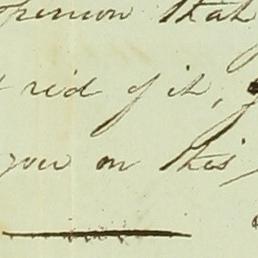 person that
rid of it,
you on this